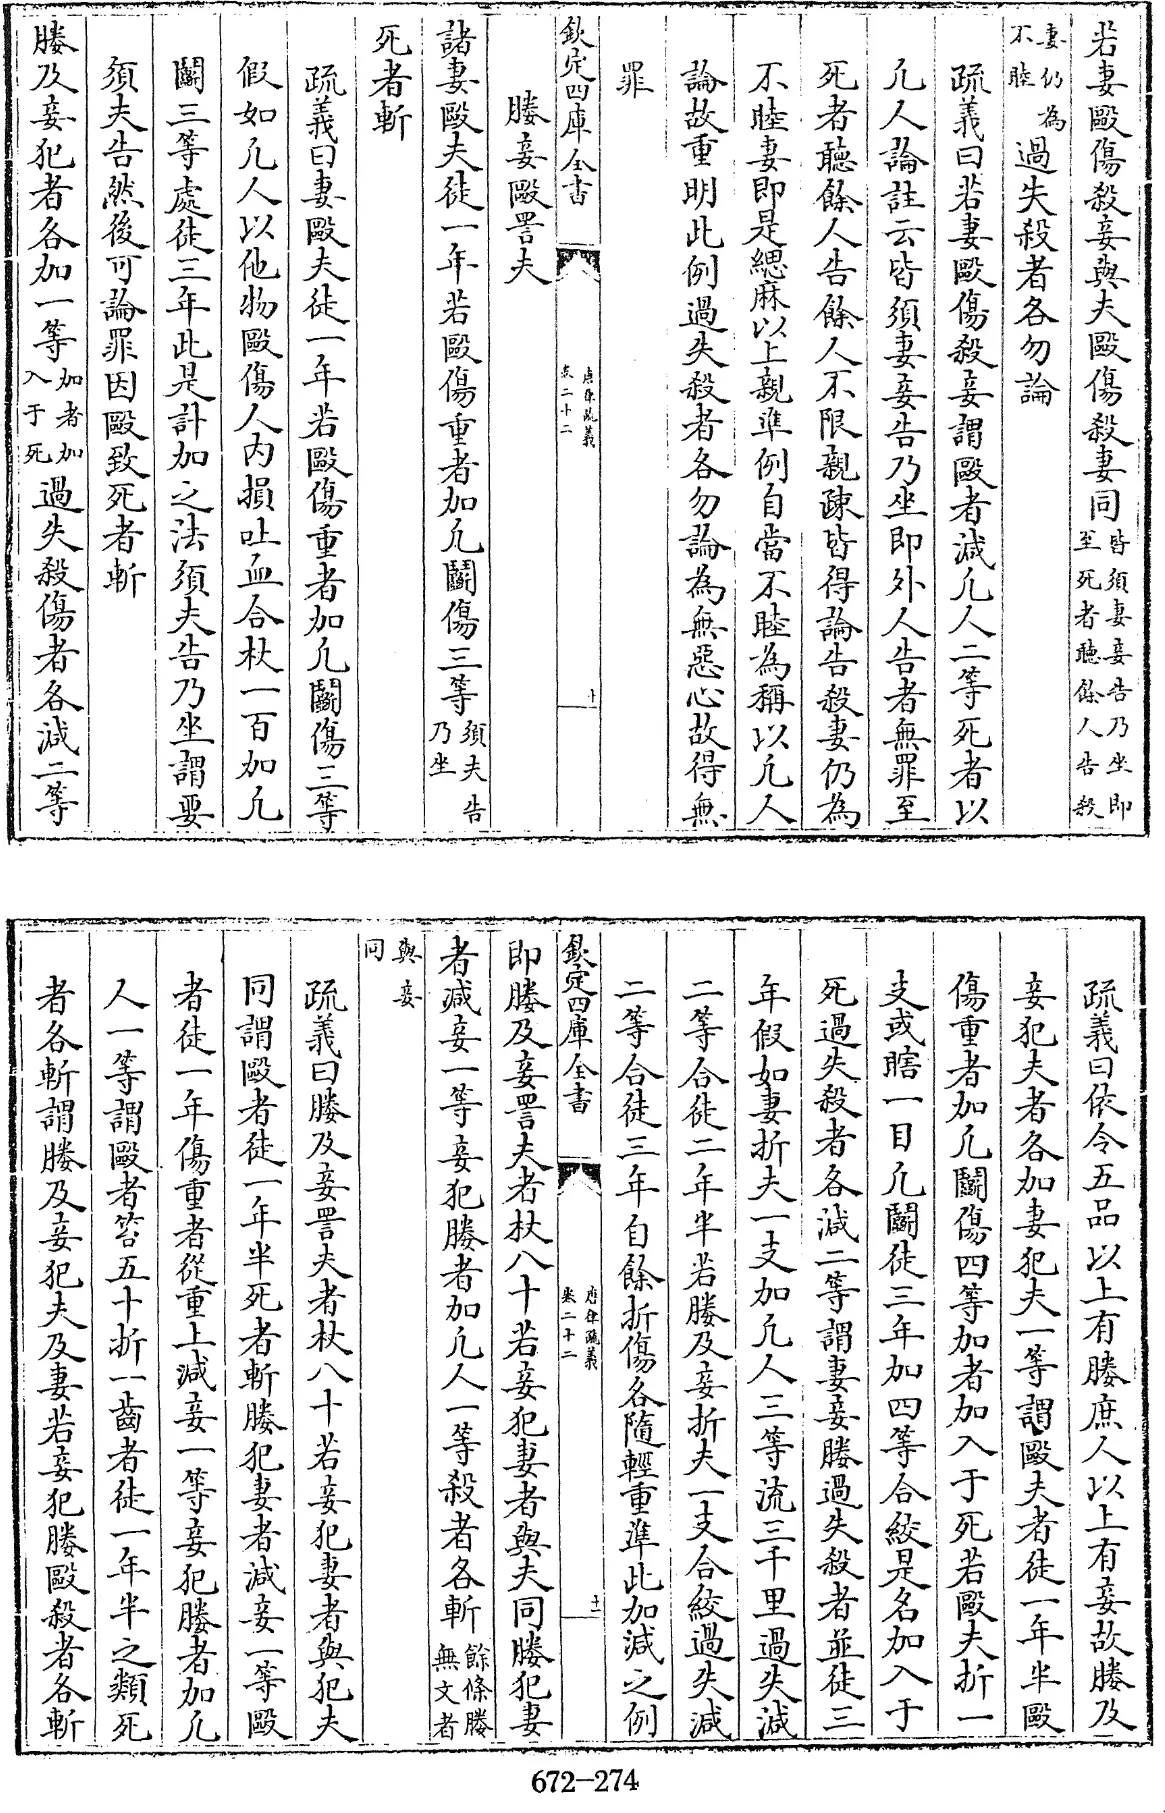 若妻毆傷殺妾與夫毆傷殺妻同皆須妻妾告乃坐即至死者聽餘人告殺
妻仍為不睦過失殺者各勿論
疏義曰若妻毆傷殺妾謂毆者減凡人二等死者以
凡人論註云皆須妻妾告乃坐即外人告者無罪至
死者聽餘人告餘人不限親疎皆得論告殺妻仍為
不睦妻即是緦麻以上親準例自當不睦為稱以凡人
論故重明此例過失殺者各勿論為無惡心故得無
罪
欽定四庫全書
唐律疏義
卷二十二
十
媵妾毆詈夫
諸妻毆夫徒一年若毆傷重者加凡鬭傷三等須夫告乃坐
死者斬
疏義曰妻毆夫徒一年若毆傷重者加凡鬭傷三等
假如凡人以他物毆傷人內損吐血合杖一百加凡
鬭三等處徒二年此是計加之法須夫告乃坐謂要
須夫告然後可論罪因毆致死者斬
媵及妾犯者各加一等加者加入于死過失殺傷者各減二等
疏義曰依令五品以上有媵庶人以上有妾故媵及
妾犯夫者各加妻犯夫一等謂毆夫者徒一年半毆
傷重者加凡鬭傷四等加者加入于死若毆夫折一
支或瞎一目凡鬭徒三年加四等合絞是名加入于
死過失殺者各減二等謂妻妾媵過失殺者並徒三
年假如妻折夫一支加凡人三等流三千里過失減
二等合徒二年半若媵及妾折夫一支合絞過失減
二等合徒三年自餘折傷各隨輕重準此加減之例
欽定四庫全書
唐律疏義
卷二十二
十一
即媵及妾詈夫者杖八十若妾犯妻者與夫同媵犯妻
者減妾一等妾犯媵者加凡人一等殺者各斬餘條媵無文者
與妾同
疏義曰媵及妾詈夫者杖八十若妾犯妻者與犯夫
同謂毆者徒一年半死者斬媵犯妻者減妾一等毆
者徒一年傷重者從重上減妾一等妾犯媵者加凡
人一等謂毆者笞五十折一齒者徒一年半之類死
者各斬謂媵及妾犯夫及妻若妾犯媵毆殺者各斬
672-274